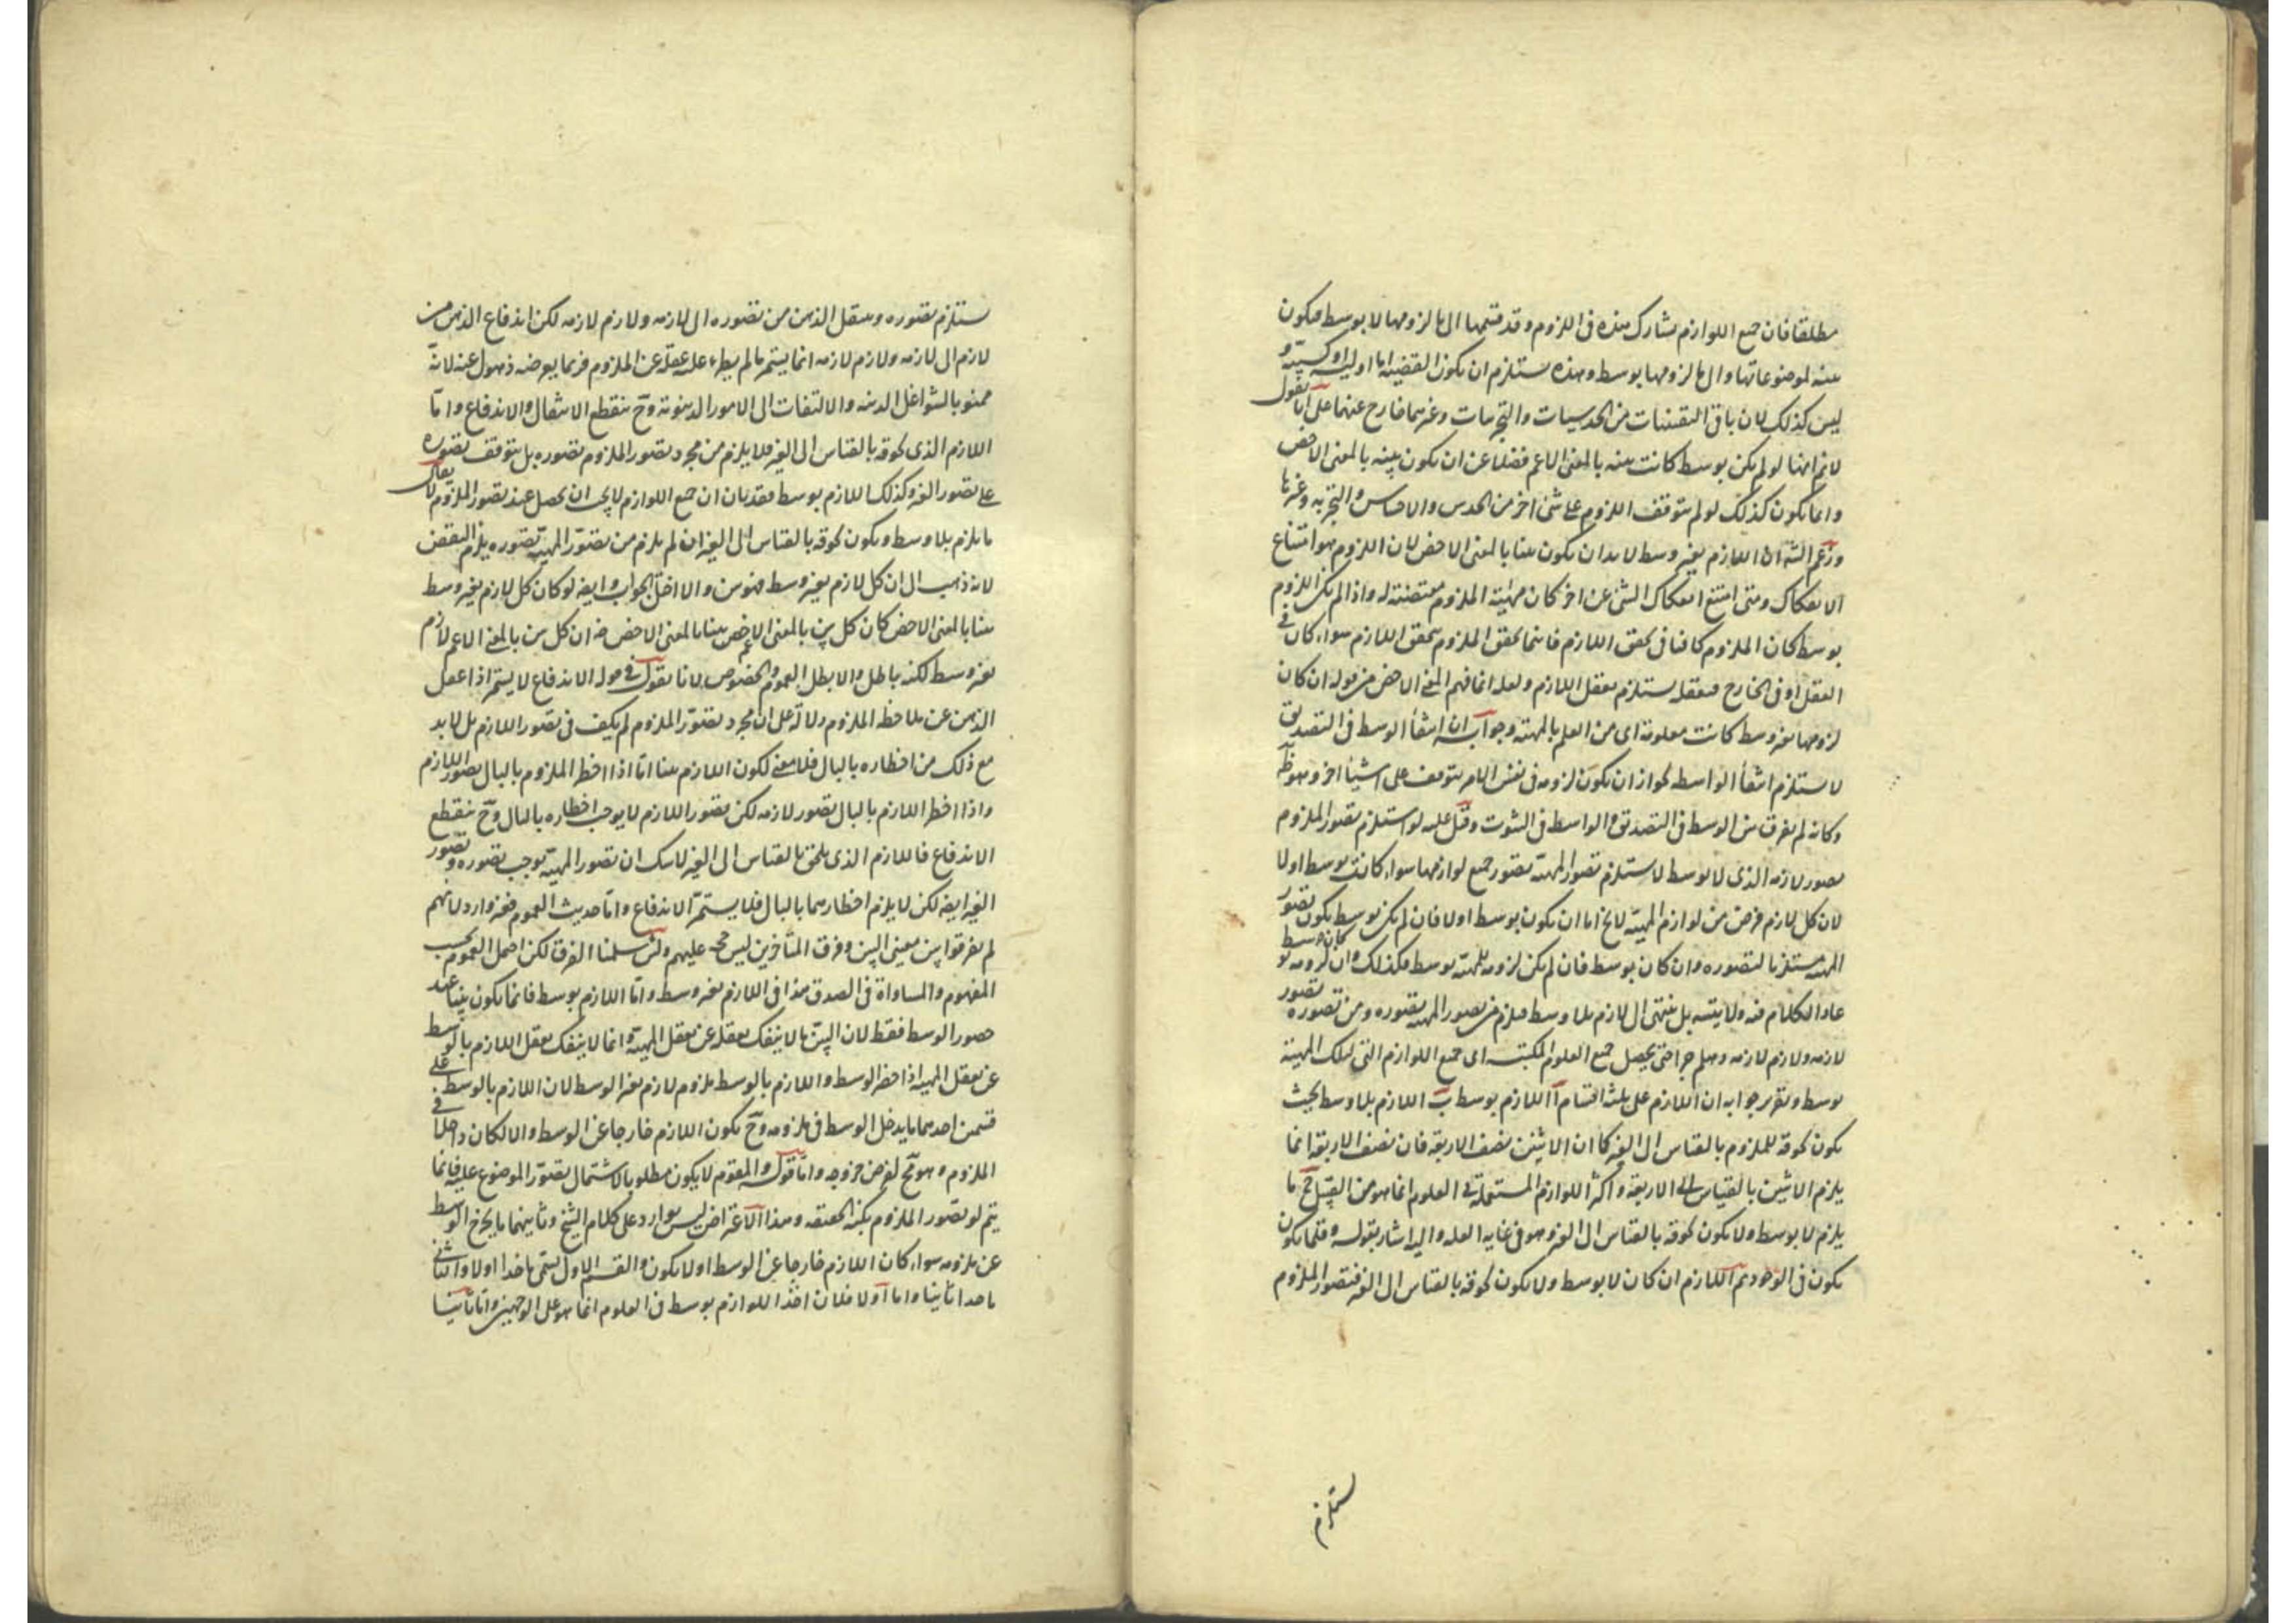 مطلقا فان جميع اللوازم يشارك هذه فى اللزوم وقد قسمها الى ما لزومها لا بوسط فيكون
بينه لموضوعاتها والى ما لزومها بوسط وهذه يستلزم ان يكون القضية اما اولية او كسبية و
ليس كذلك لان باقى اليقينيات من الحدسيات والتجربيات وغيرهما خارج عنهما على انا نقول
لانم انها لو لم يكن بوسط كانت بينه بالمعنى الاعم فضلا عن ان يكون بينه بالمعنى الاخص
وانما يكون كذلك لو لم يتوقف اللزوم على شئ اخر من الحدس والاحساس والتجربه وغيرها
وزعم الش ان اللازم بغير وسط لا بد ان يكون بينا بالمعنى الاخص لان اللزوم هو امتناع
الانفكاك ومتى امتنع انفكاك الشئ عن اخر كان مهية الملزوم مقتضية له واذا لم يكن اللزوم
بوسط كان الملزوم كافيا فى تحقق اللازم فاينما تحقق الملزوم يتحقق اللازم سواء كان فى
العقل او فى الخارج فتعقله يستلزم تعقل اللازم ولعله انما فهم المعنى الاخص من قوله ان كان
لزومها بغير وسط كانت معلومة اى من العلم بالمهية وجوابه ان انتفاء الوسط فى التصديق
لا يستلزم انتفاء الواسطه لجواز ان يكون لزومه فى نفس الامر يتوقف على اشياء اخر وهو ظ
وكانه لم يفرق بين الوسط فى التصديق والواسط فى الثبوت وقيل عليه لو استلزم تصور الملزوم
تصور لازمه الذى لا بوسط لاستلزم تصور المهية تصور جميع لوازمها سواء كانت بوسط اولا
لان كل لازم فرض من لوازم المهية لا يخ اما ان يكون بوسط اولا فان لم يكن بوسط يكون تصور
المهية مستلزما لتصوره وان كان بوسط فان لم يكن لزومه للمهية بوسط فكذلك وان كان لزومه بوسط
عاد الكلام فيه ولا يتسه بل ينتهى الى لازم بلا وسط فيلزم من تصور المهية تصوره ومن تصوره تصور
لازمه ولازم لازمه وهلم جرا حتى يحصل جميع العلوم المكتسبه اى جميع اللوازم التى لتلك المهية
بوسط وتقرير جوابه ان اللازم على ثلثة اقسام آ اللازم بوسط ب اللازم بلا وسط بحيث
يكون لحوقه للملزوم بالقياس الى الغير كما ان الاثنين نصف الاربعة فان نصف الاربعة انما
يلزم الاثنين بالقياس الى الاربعة واكثر اللوازم المستعملة فى العلوم انما هو من القبيل ج ما
يلزم لا بوسط ولا يكون لحوقه بالقياس الى الغير وهو فى غاية القله واليه اشار بقوله وقلما يكون
يكون فى الوجود ثم اللازم ان كان لا بوسط ولا يكون لحوقه بالقياس الى الغير فتصور الملزوم
ستلزم
يستلزم تصوره وينتقل الذهن من تصوره الى لازمه ولازم لازمه لكن اندفاع الذهن من
لازم الى لازمه ولازم لازمه انما يستمر ما لم يطرء عليه غفلة عن الملزوم فربما يعرضه ذهول عنه لانه
ممنو بالشواغل البدنيه والالتفات الى الامور الدنيويه وح ينقطع الانتقال والاندفاع واما
اللازم الذى لحوقه بالقياس الى الغير فلا يلزم من مجرد تصور الملزوم تصوره بل يتوقف تصوره
على تصور الغير وكذلك اللازم بوسط فقد بان ان جميع اللوازم لا يجب ان يحصل عند تصور الملزوم لا يقال
ما يلزم بلا وسط ويكون لحوقه بالقياس الى الغير ان لم يلزم من تصور المهية تصوره يلزم النقض
لانه ذهب الى ان كل لازم بغير وسط فهو بين والا اختل الجواب وايضه لو كان كل لازم بغير وسط
بينا بالمعنى الاخص كان كل بين بالمعنى الاعم بينا بالمعنى الاخص ضه ان كل بين بالمعنى الاعم لازم
بغير وسط لكنه باطل والا بطل العموم والخصوص لانا نقول فى قوله الاندفاع لا يستمر اذا غفل
الذهن عن ملاحظة الملزوم دلالة على ان مجرد تصور الملزوم لم يكف فى تصور اللازم بل لا بد
مع ذلك من اخطاره بالبال فلا معنى لكون اللازم بينا اما اذا اخطر الملزوم بالبال تصور اللازم
واذا اخطر اللازم بالبال تصور لازمه لكن تصور اللازم لا يوجب اخطاره بالبال وح ينقطع
الاندفاع فاللازم الذى يلحق بالقياس الى الغير لا شك ان تصور المهية يوجب تصوره وتصور
الغير ايضه لكن لا يلزم اخطارهما بالبال فلا يستمر الاندفاع واما حديث العموم فغير وارد لانهم
لم يفرقوا بين معينى البين وفرق المتاخرين ليس حجه عليهم ولئن سلمنا الفرق لكن احمل العموم بحسب
المفهوم والمساواة فى الصدق هذا فى اللازم بغير وسط واما اللازم بوسط فانما يكون بينا عند
حضور الوسط فقط لان البين ما لا ينفك تعقله عن تعقل المهية وانما لا ينفك تعقل اللازم بالوسط
عن تعقل المهية اذا حضر الوسط واللازم بالوسط ملزوم لازم بغير الوسط لان اللازم بالوسط على
قسمين احدهما ما يدخل الوسط فى ملزومه وح يكون اللازم خارجا عن الوسط والا لكان داخلا فى
الملزوم وهو مح لفرض خروجه واما قوله والمقوم لا يكون مطلوبا لاشتمال تصور الموضوع عليه فانما
يتم لو تصور الملزوم بكنه الحقيقه وهذا الاعتراض ليس بوارد على كلام الشيخ وثانيهما ما يخرج الوسط
عن ملزومه سواء كان اللازم خارجا عن الوسط او لا يكون والقسم الاول يسمى ماخذا اولا والثانى
ماخذا ثانيا واما اولا فلان اخذ اللوازم بوسط فى العلوم انما هو على الوجهين واما ثانيا